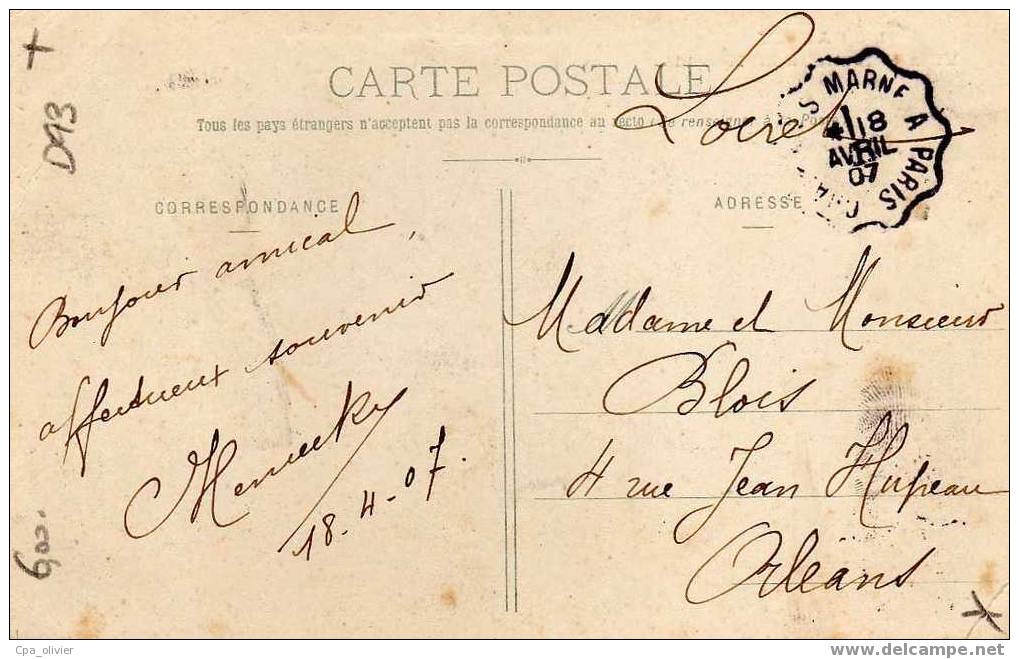 CARTE POSTALE
Loiret
Tous les pays étrangers n'acceptent pas la correspondance au recto
CORRESPONDANCE
ADRESSE
S MARNE A PARIS
18
AVRIL
07
D43
Bonjour amical,
affectueux souvenir
18.4-07.
Madame et Monsieur
Blois
4 rue Jean Hupeau
Orléans
Cpa_olivier
www.delcampe.net